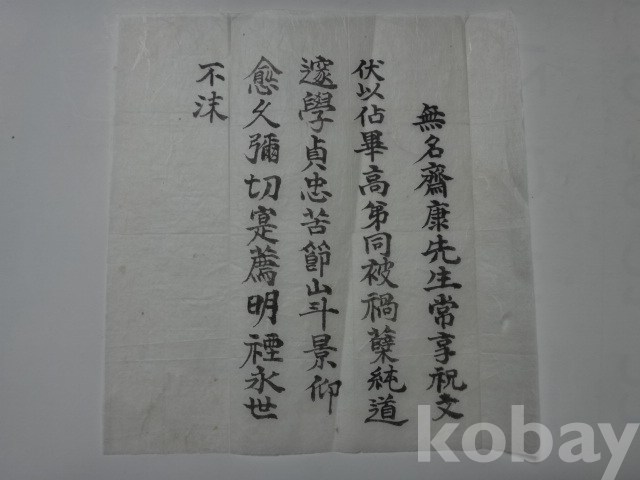 無名齋康先生常享祝文
伏以佔畢高第同被禍蘖純道
邃學貞忠苦節山斗景仰
愈久彌切寔薦明禋永世
不沫
kobay